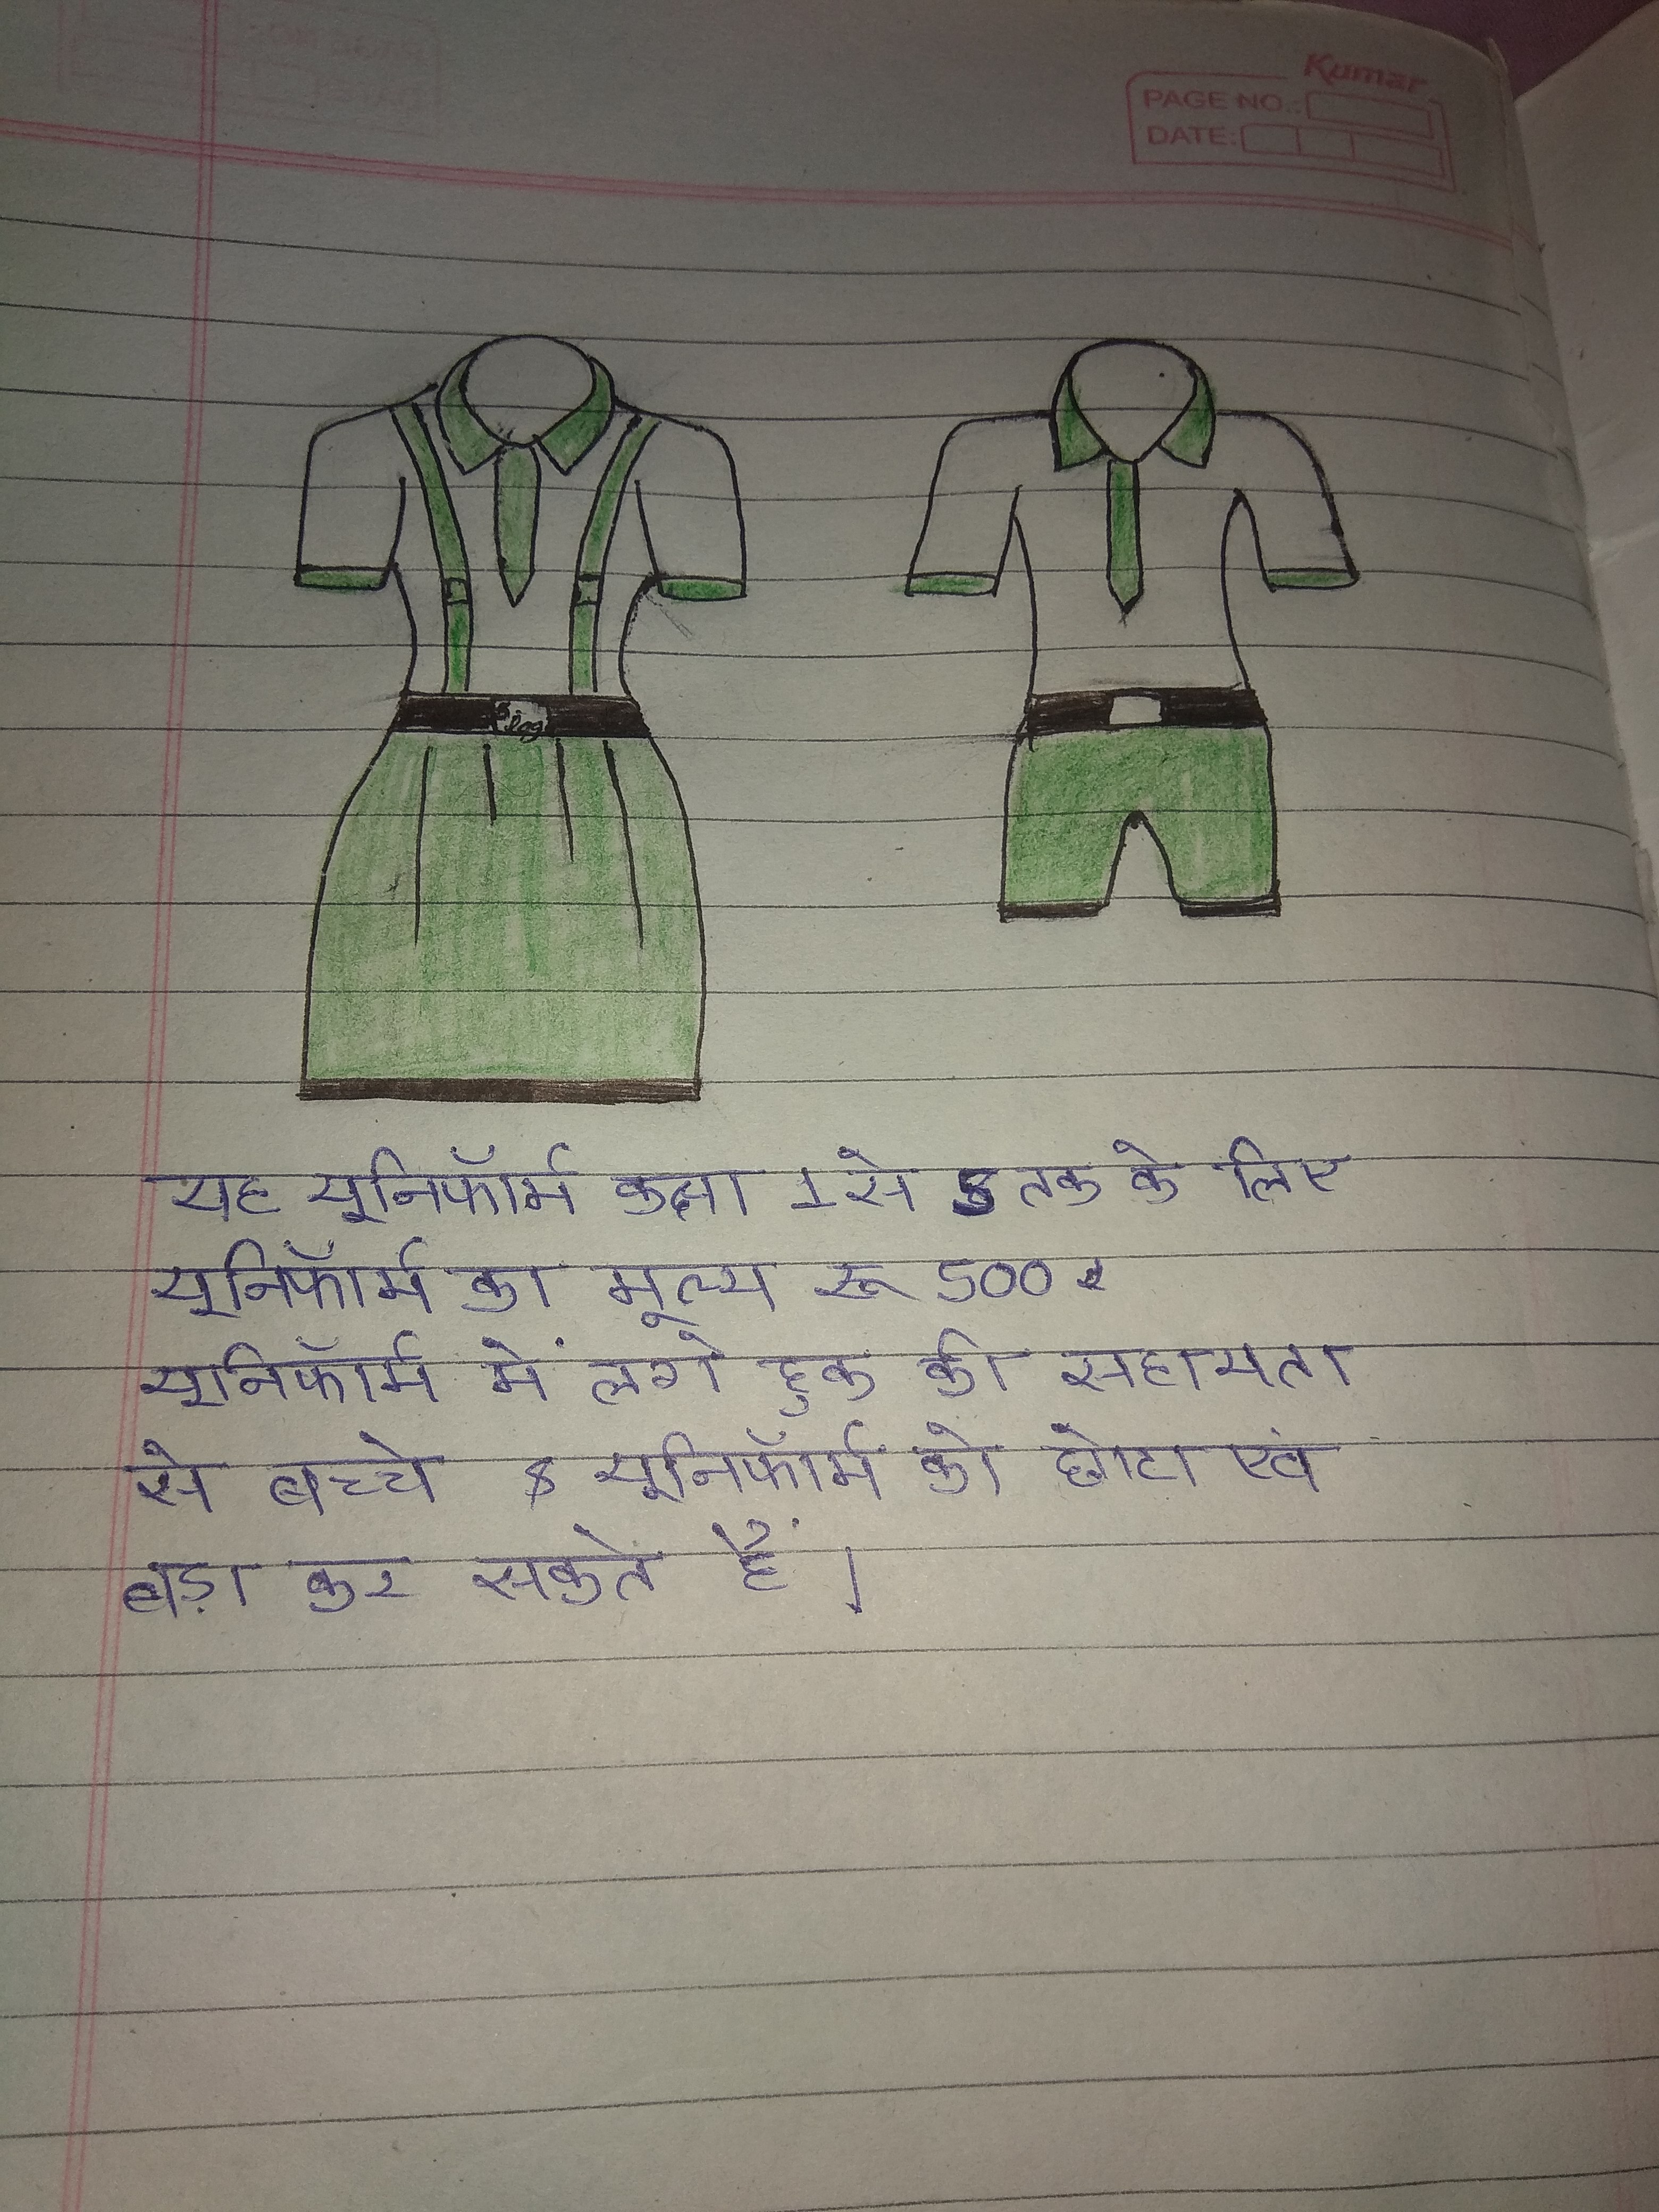 Kumar
PAGE NO.:
DATE:
यह यूनिफॉर्म कक्षा 1 से 5 तक के लिए
यूनिफॉर्म का मूल्य रू 500
यूनिफॉर्म में लगे हुक की सहायता
से बच्चे यूनिफॉर्म को छोटा एवं
बड़ा कर सकते हैं |